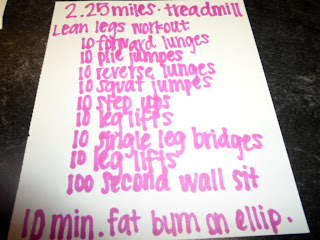 2.25 miles. treadmill
Lean legs workout
10 forward lunges
10 plie jumpes
10 reverse lunges
10 squat jumpes
10 step ups
10 leg lifts
10 single leg bridges
10 leg lifts
100 second wall sit
10 min. fat burn on ellip.